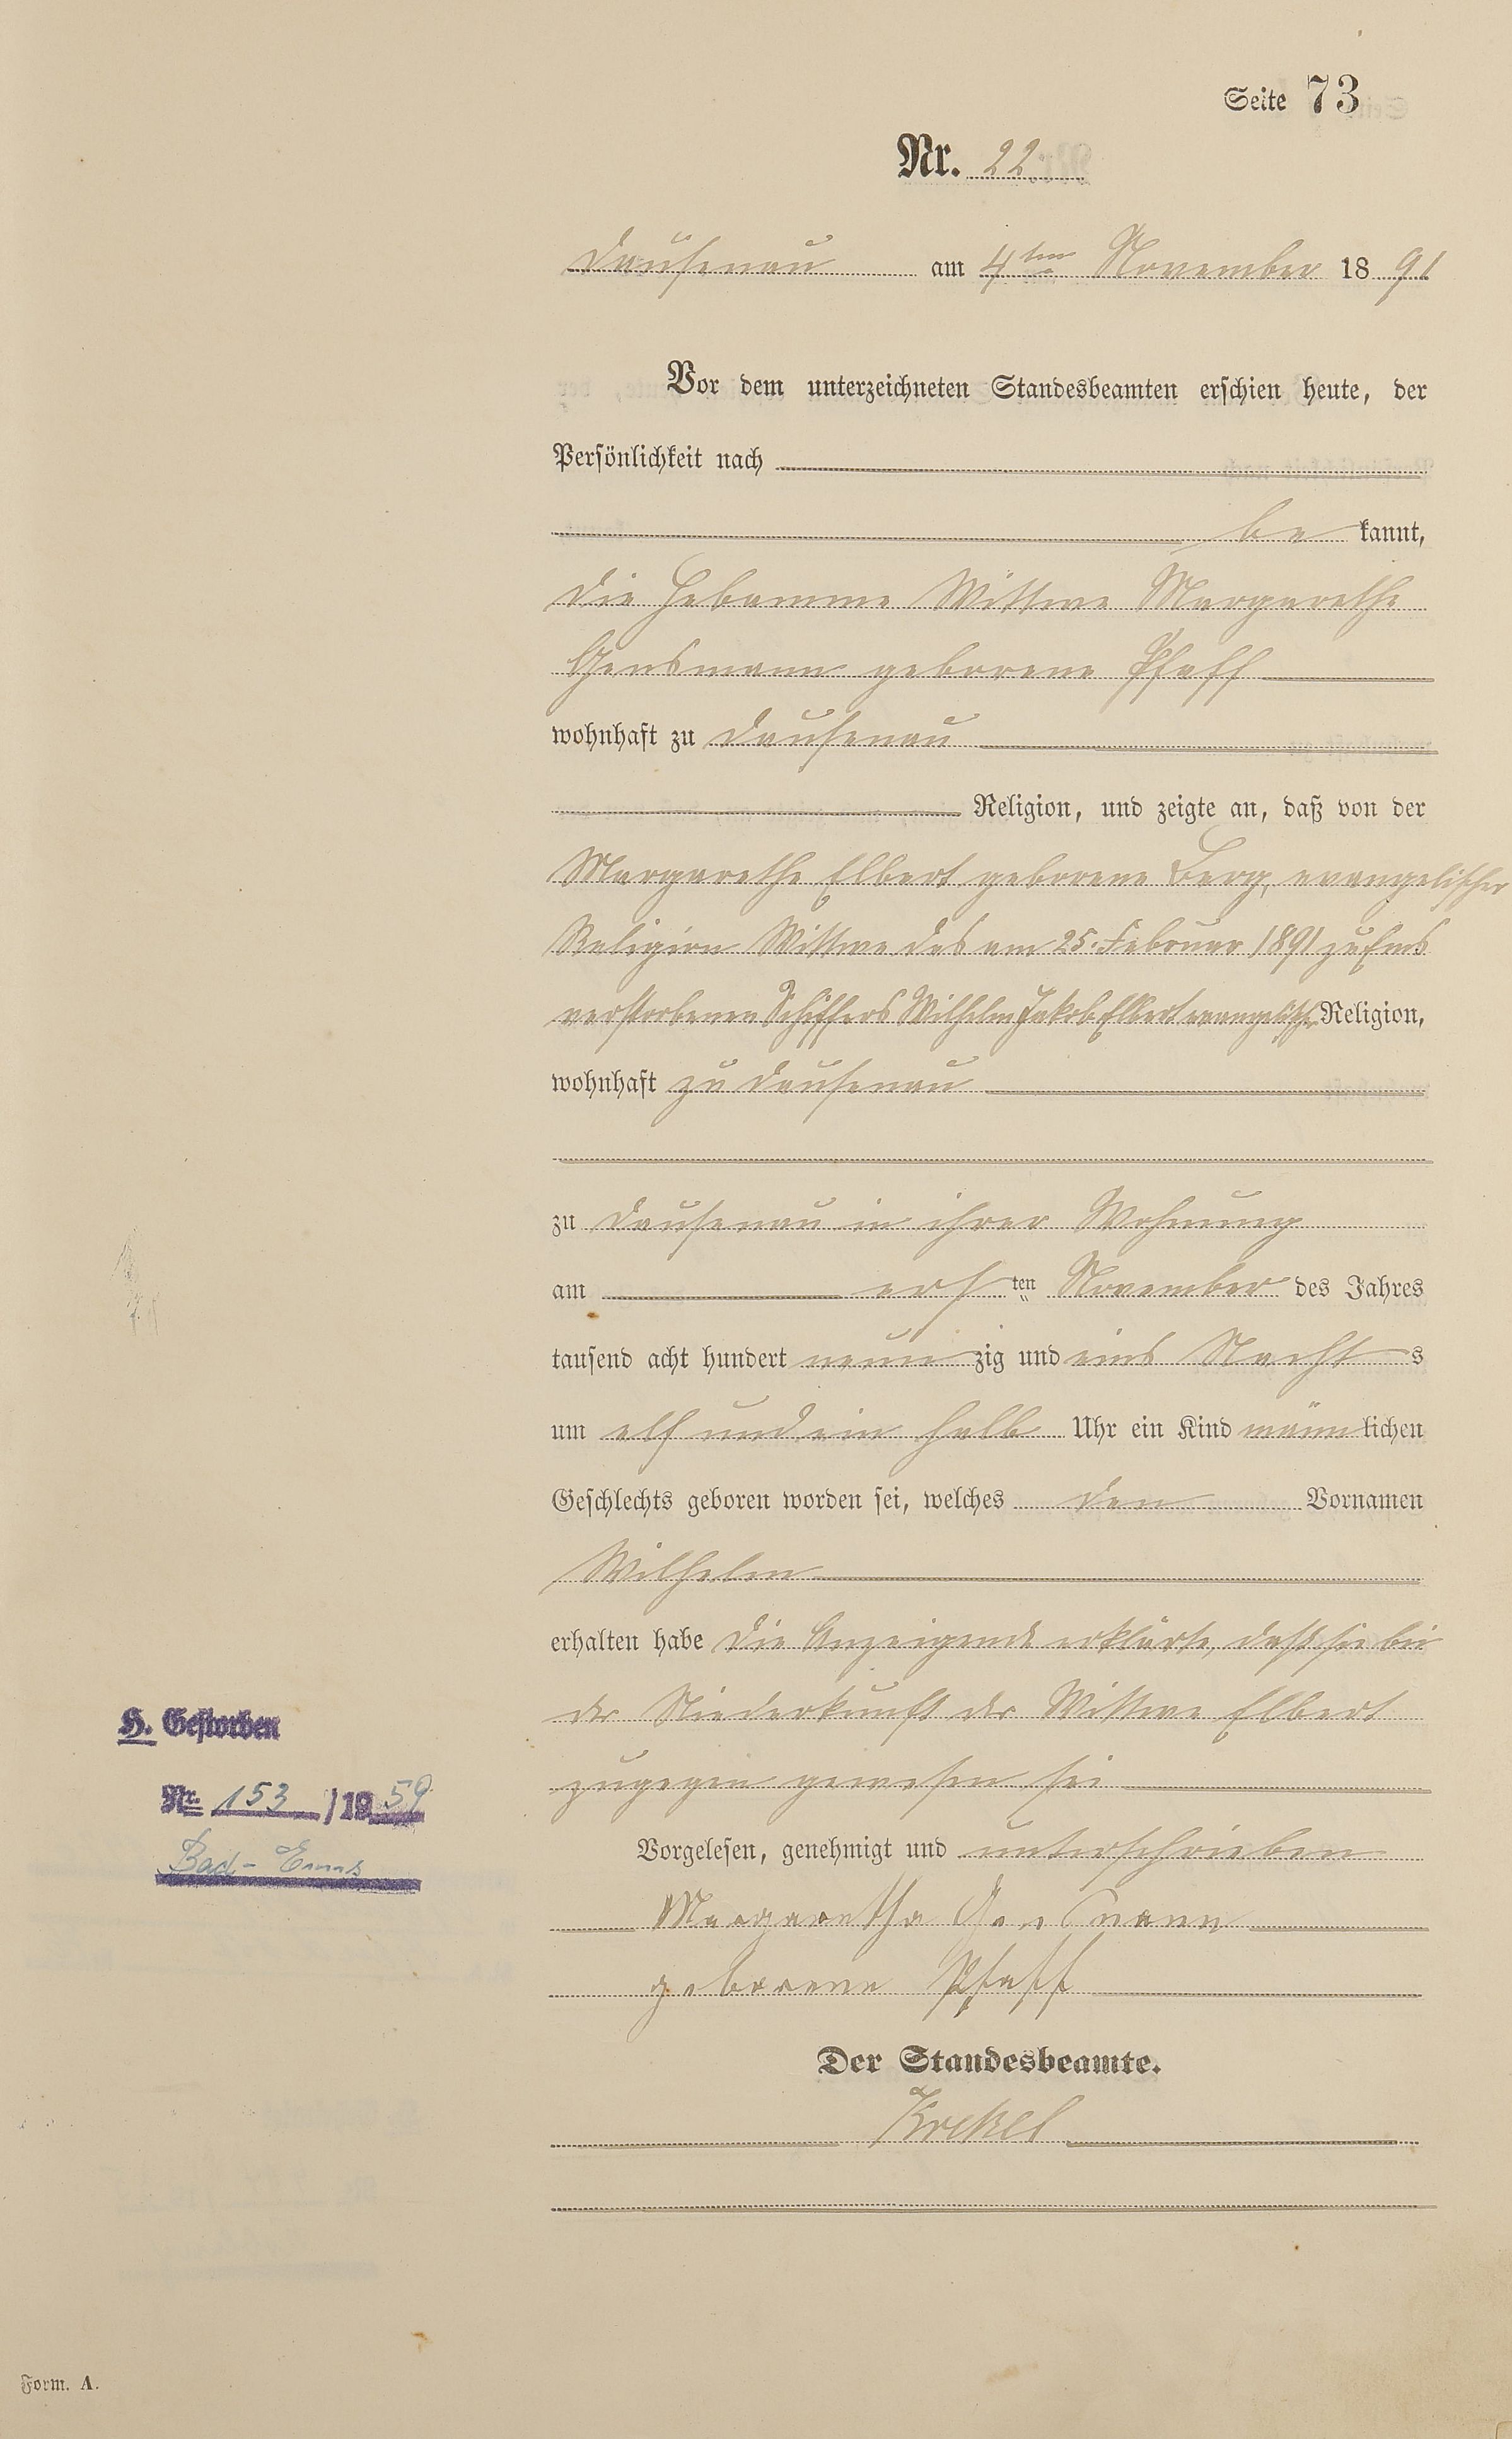 Seite 73
Nr. 22.
Dausenau am 4ten November 1891
Vor dem unterzeichneten Standesbeamten erschien heute, der
Persönlichkeit nach
be kannt,
die Hebamme Wittwe Margarethe
Gensmann geborene Pfaff
wohnhaft zu Dausenau
Religion, und zeigte an, daß von der
Margarethe Elbert geborene Berg, evangelischer
Religion Wittwe des am 25. Februar 1891 zu Ems
verstorbenen Schiffers Wilhelm Jakob Elbert evangelischer Religion,
wohnhaft zu Dausenau
zu Dausenau in ihrer Wohnung
am ersten November des Jahres
tausend acht hundert neunzig und eins Nachts
um elf und ein halb Uhr ein Kind männlichen
Geschlechts geboren worden sei, welches den Vornamen
Wilhelm
erhalten habe Die Anzeigende erklärte, daß sie bei
der Niederkunft der Wittwe Elbert
zugegen gewesen sei
H. Gestorben
Nr. 153 / 1959
Bad-Ems
Vorgelesen, genehmigt und unterschrieben
Margaretha Gensmann
geborene Pfaff
Der Standesbeamte.
Krekel
Form. A.